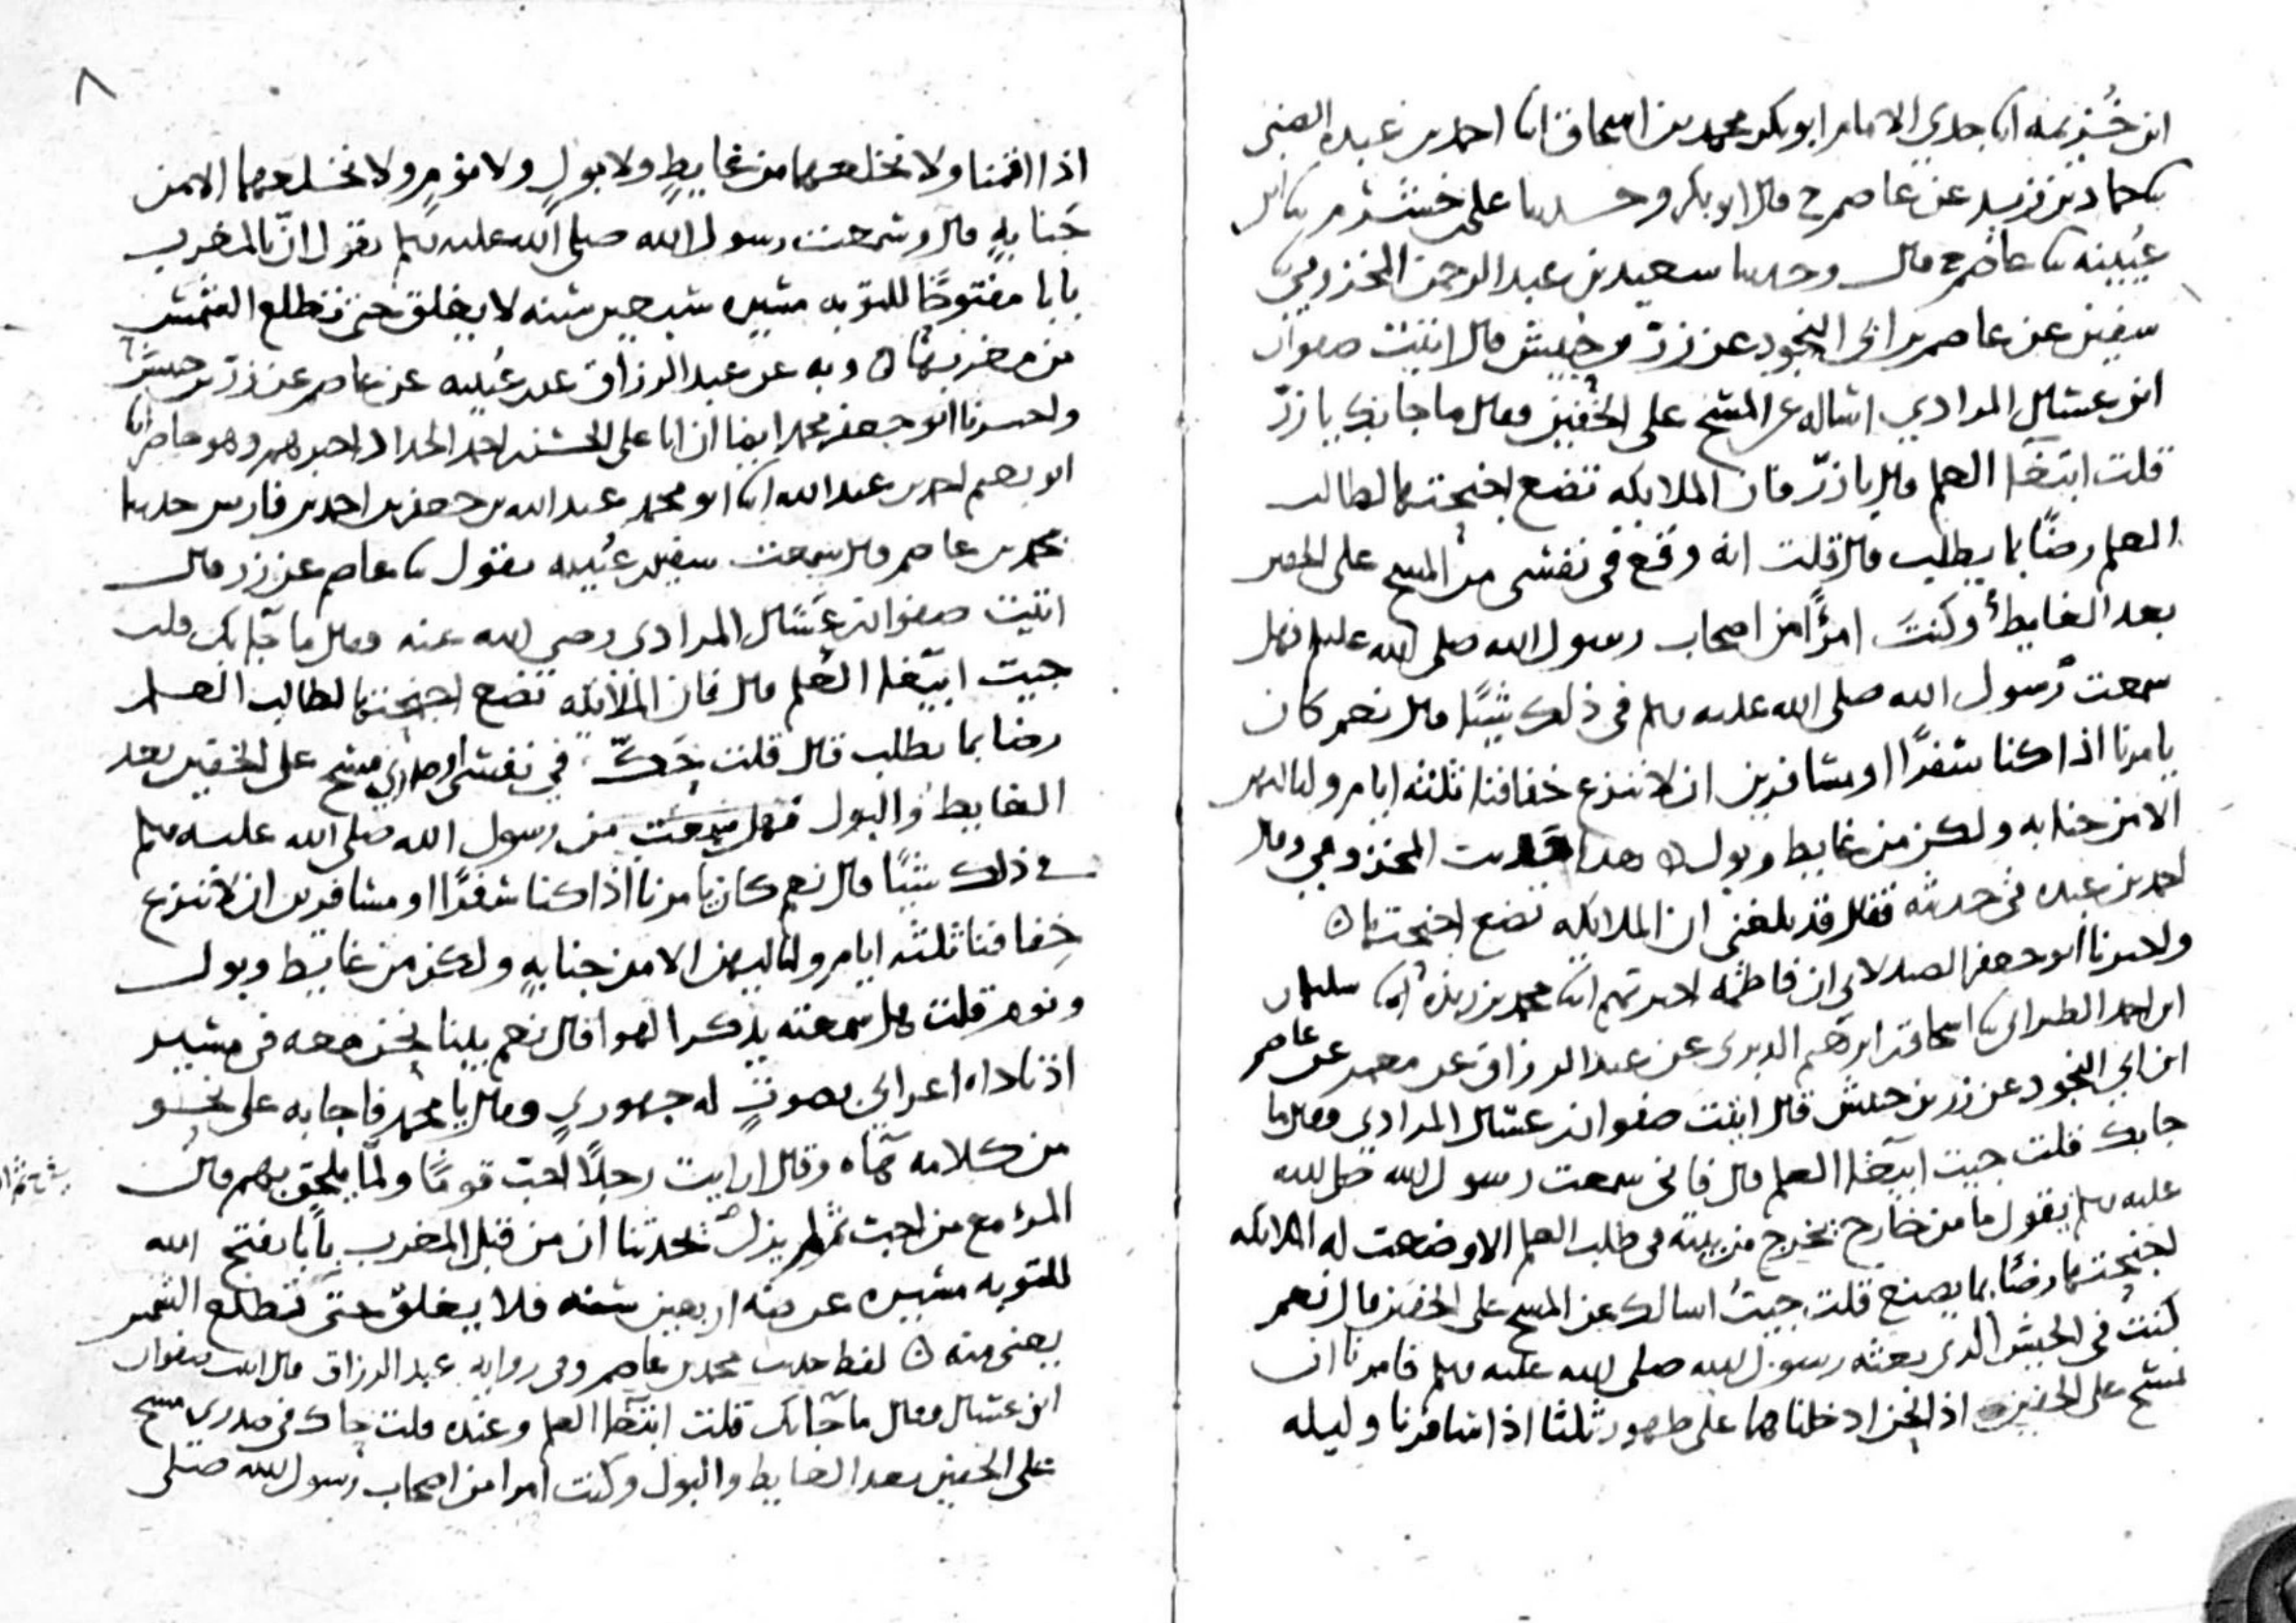 ابن خُزيمه انا جدي الامام ابو بكر محمد بن اسحاق انا احمد بن عبده الضبي
نا حماد بن زيد عن عاصم ح قال ابو بكر وحدثنا علي بن خشرم نا ابن
عُيينه نا عاصم ح قال وحدثنا سعيد بن عبد الرحمن المخزومي نا
سفين عن عاصم بن ابي النجود عن زر بن حبيش قال اتيت صفوان
ابن عسال المرادي اساله عن المسح على الخفين فقال ما جا بك يا زرّ
قلت ابتغا العلم قال يا زرّ فان الملايكه تضع اجنحتها لطالب
العلم رضًا بما يطلب قال قلت انه وقع في نفسي من المسح على الخفين
بعد الغايط وكنتَ امرًأ من اصحاب رسول الله صلى الله عليه فهل
سمعت رسول الله صلى الله عليه وسلم في ذلك شيًا قال نعم كان
يامرنا اذا كنا سفرًا او مسافرين ان لا ننزع خفافنا ثلثه ايام ولياليهن
الا من جنابه ولكن من غايط وبول ه هذا حديث المخزومي وقال
احمد بن عبده في حديثه فقال قد بلغني ان الملايكه تضع اجنحتها ه
واخبرنا ابو جعفر الصيدلاني ان فاطمه اخبرتهم انا محمد بن ريذه انا سليمان
ابن احمد الطبراني نا اسحاق بن ابرهيم الدبري عن عبد الرزاق عن معمر عن عاصم
ابن ابي النجود عن زر بن حبيش قال اتيت صفوان بن عسّال المرادي فقال ما
جا بك قلت جيت ابتغا العلم قال فاني سمعت رسول الله صلى الله
عليه وسلم يقول ما من خارج يخرج من بيته في طلب العلم الا وضعت له الملايكه
اجنحتها رضًا بما يصنع قلت جيتُ اسالك عن المسح على الخفين قال نعم
كنتُ في الجيش الذي بعثه رسول الله صلى الله عليه وسلم فامرنا ان
نمسح على الخفين اذا نحن ادخلناهما على طهور ثلثا اذا سافرنا وليله
٨
اذا اقمنا ولا نخلعهما من غايطٍ ولا بولٍ ولا نومٍ ولا نخلعهما الا من
جَنابهٍ قال وسمعت رسول الله صلى الله عليه وسلم يقول انّ بالمغرب
بابا مفتوحًا للتوبه مسيره سبعين سنه لا يغلق حتى تطلع الشمس
من مغربها ه وبه عن عبد الرزاق عن ابن عُيينه عن عاصم عن زرّ بن حبيش
واخبرنا ابو جعفر محمد ايضا ان ابا علي الحسن بن احمد الحداد اخبرهم وهو حاضر انا
ابو نعيم احمد بن عبد الله انا ابو محمد عبد الله بن جعفر بن احمد بن فارس حدثنا
محمد بن عاصم قال سمعت سفين بن عُيينه يقول نا عاصم عن زر قال
اتيت صفوان بن عَسّال المرادي رضي الله عنه فقال ما جآ بك قلت
جيت ابتغا العلم قال فان الملائكه تضع اجنحتها لطالب العلم
رضا بما يطلب قال قلت حَكّ في نفسي او صدري مسح على الخفين بعد
الغايط والبول فهل سمعت من رسول الله صلى الله عليه وسلم
في ذلك شيًا قال نعم كان يامرنا اذا كنا سفرًا او مسافرين ان لا ننزع
خِفافنا ثلثه ايام ولياليهن الا من جنابهٍ ولكن من غايط وبول
ونوم قلت هل سمعته يذكر الهوا قال نعم بينا نحن معه في مسير
اذ ناداه اعرابي بصوتٍ له جهوري فقال يا محمد فاجابه على نحو
من كلامه هآه وقال ارايت رجلًا احبّ قومًا ولمّا يلحق بهم قال
المرؤ مع من احبّ ثم لم يزل يحدثنا ان من قبل المغرب بابًا يفتح الله
للتوبه مسيره عرضه اربعين سنه فلا يغلق حتى تطلع الشمس
يعني منه ه لفظ حديث محمد بن عاصم وفي روايه عبد الرزاق قال اتيت صفوان
ابن عسال فقال ما جآ بك قلت ابتغآ العلم وعنده قلت حاك في صدري مسح
على الخفين بعد الغايط والبول وكنت امرا من اصحاب رسول الله صلى